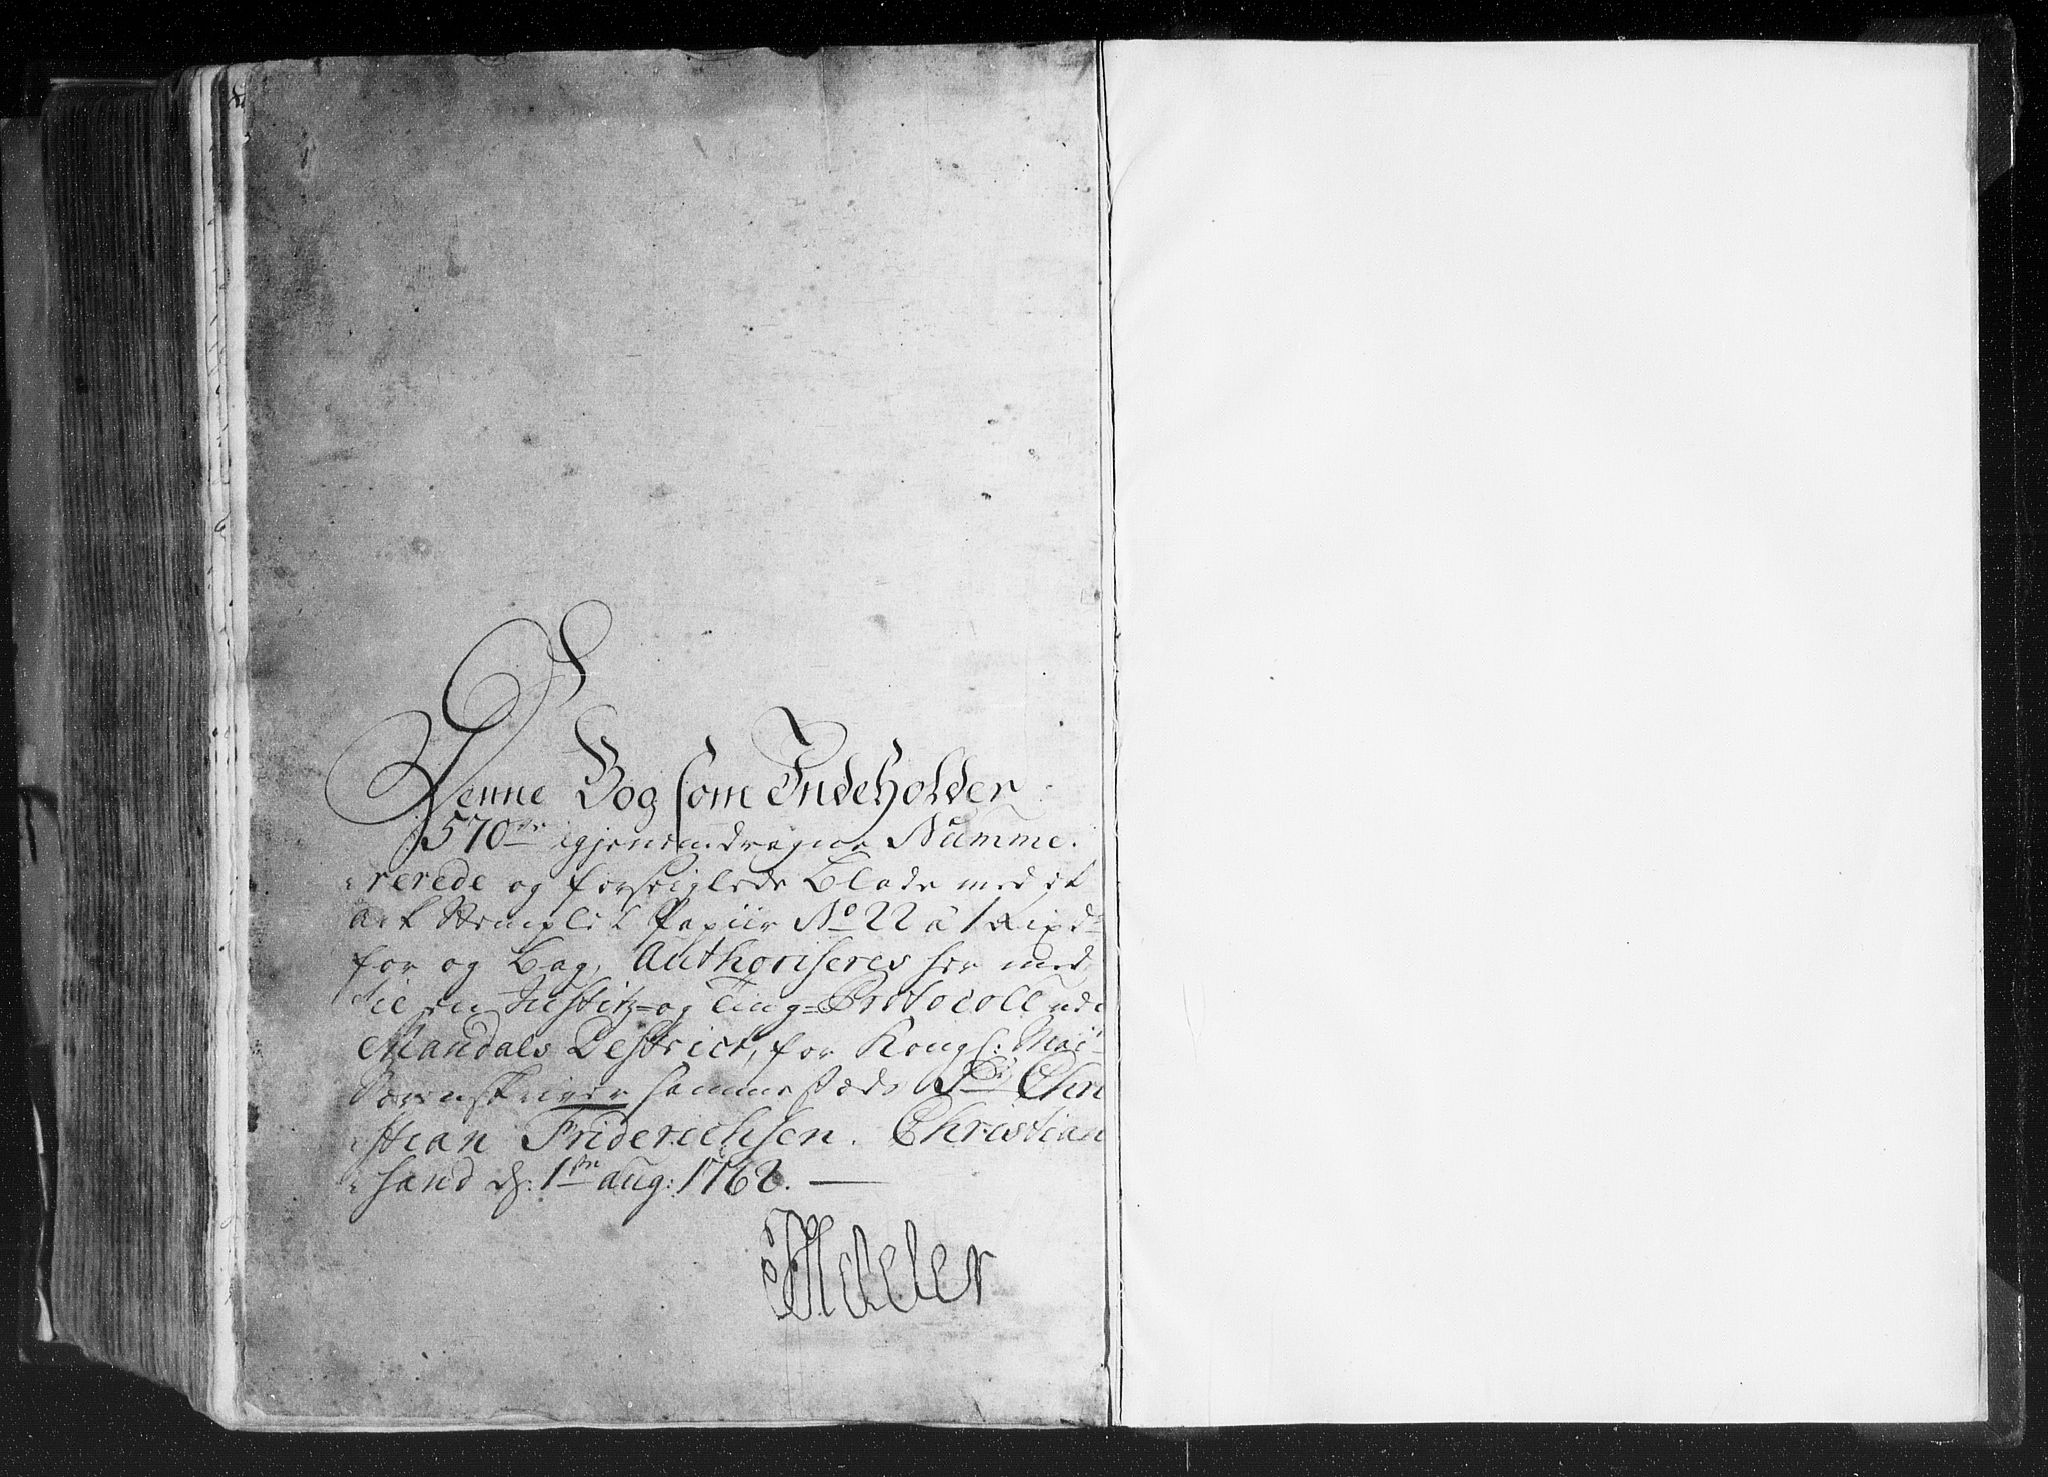 Denne Bog som Indeholder
570de igjenemdragne Numme-
rerede og forseiglede Blade med et
Ark Stemplet Papiir No 22 á 1 Rixd
for og Bag, Authoriseres her med
til en Justitz- og Ting-Protocoll udi
Mandals Destrict, for Kongl: Mai
Sorenskriver sammestæds Sr Chri
stian Friderichsen. Christian
sand d: 1te aug: 1762.
Adeler